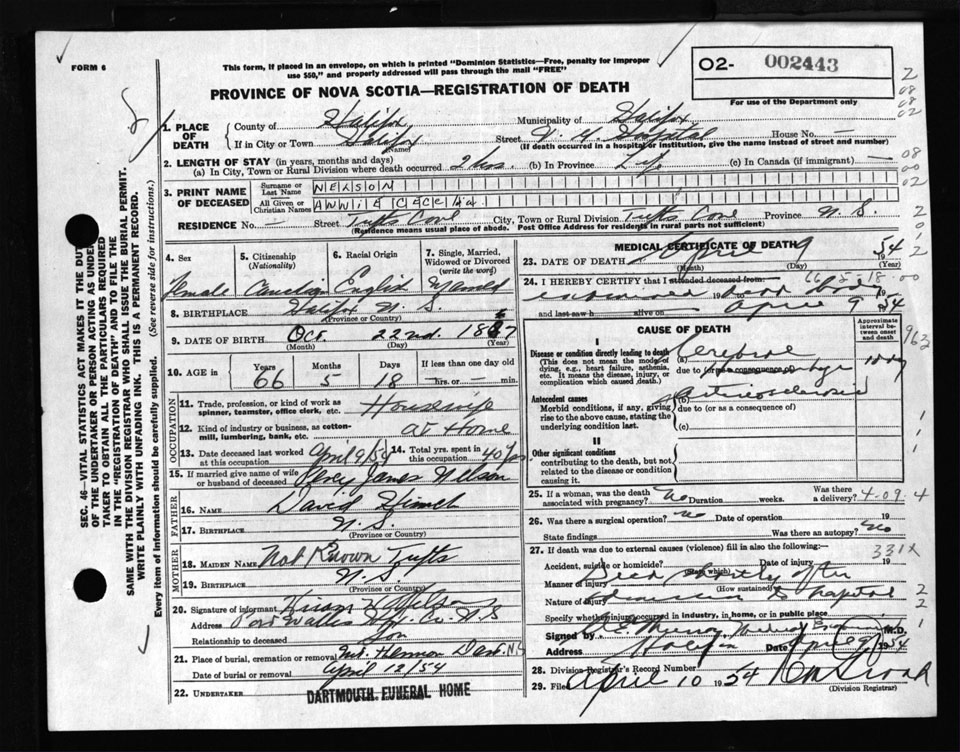 FORM 6
This form, if placed in an envelope, on which is printed "Dominion Statistics—Free, penalty for improper
use $50," and properly addressed will pass through the mail "FREE"
O2- 002443
For use of the Department only
PROVINCE OF NOVA SCOTIA—REGISTRATION OF DEATH
1. PLACE OF DEATH
County of Halifax Municipality of Halifax
If in City or Town Halifax Street V. G. Hospital House No. —
(Name) (If death occurred in a hospital or institution, give the name instead of street and number)
2. LENGTH OF STAY (in years, months and days)
(a) In City, Town or Rural Division where death occurred 2 hrs. (b) In Province Life (c) In Canada (if immigrant) —
3. PRINT NAME OF DECEASED
Surname or Last Name NELSON
All Given or Christian Names ANNIE CECELIA
RESIDENCE No. — Street Tufts Cove City, Town or Rural Division Tufts Cove Province N. S.
(Residence means usual place of abode. Post Office Address for residents in rural parts not sufficient)
4. Sex Female
5. Citizenship (Nationality) Canadian
6. Racial Origin English
7. Single, Married, Widowed or Divorced (write the word) Married
8. BIRTHPLACE Halifax N. S.
(Province or Country)
9. DATE OF BIRTH Oct. 22nd. 1887
(Month) (Day) (Year)
10. AGE IN Years 66 Months 5 Days 18 If less than one day old — hrs. or — min.
OCCUPATION
11. Trade, profession, or kind of work as spinner, teamster, office clerk, etc. Housewife
12. Kind of industry or business, as cotton-mill, lumbering, bank, etc. At Home
13. Date deceased last worked at this occupation April 9/54 14. Total yrs. spent in this occupation 40 yrs
15. If married give name of wife or husband of deceased James Nelson
FATHER
16. Name David
17. BIRTHPLACE N. S.
(Province or Country)
MOTHER
18. MAIDEN NAME Not Known Tufts
19. BIRTHPLACE N. S.
(Province or Country)
20. Signature of informant Nelson
Address Port Wallis Hfx. Co. N.S
Relationship to deceased Son
21. Place of burial, cremation or removal Mt. Hermon Dart. N.S
Date of burial or removal April 12/54
22. UNDERTAKER DARTMOUTH FUNERAL HOME
MEDICAL CERTIFICATE OF DEATH
23. DATE OF DEATH April 9 1954
(Month) (Day) (Year)
66-5-18-00
24. I HEREBY CERTIFY that I attended deceased from
examined dead body
and last saw h alive on April 9 1954
CAUSE OF DEATH
Approximate interval between onset and death
I
Disease or condition directly leading to death
(This does not mean the mode of dying, e.g., heart failure, asthenia, etc. It means the disease, injury, or complication which caused death.)
(a) Cerebral
due to (or as a consequence of) 1 day
Antecedent causes
Morbid conditions, if any, giving rise to the above cause, stating the underlying condition last.
(b) arteriosclerosis
due to (or as a consequence of)
(c)
II
Other significant conditions
contributing to the death, but not related to the disease or condition causing it.
25. If a woman, was the death associated with pregnancy? No Duration weeks. Was there a delivery? 4-09.4
26. Was there a surgical operation? no Date of operation 19
State findings Was there an autopsy? No
27. If death was due to external causes (violence) fill in also the following:—
331X
Accident, suicide or homicide? (State which) Date of injury 19
Manner of injury Died shortly after
(How sustained)
Nature of injury admission to hospital
Specify whether injury occurred in industry, in home, or in public place
Signed by Medical Examiner M.D.
Address Halifax Date Apr 9 1954
28. Division Registrar's Record Number
29. Filed April 10 1954
(Division Registrar)
SEC. 46—VITAL STATISTICS ACT MAKES IT THE DUTY
OF THE UNDERTAKER OR PERSON ACTING AS UNDER-
TAKER TO OBTAIN ALL THE PARTICULARS REQUIRED
IN THE "REGISTRATION OF DEATH" AND TO FILE THE
SAME WITH THE DIVISION REGISTRAR WHO SHALL ISSUE THE BURIAL PERMIT.
WRITE PLAINLY WITH UNFADING INK. THIS IS A PERMANENT RECORD.
Every item of Information should be carefully supplied. (See reverse side for instructions.)
2
08
08
02
08
00
02
963